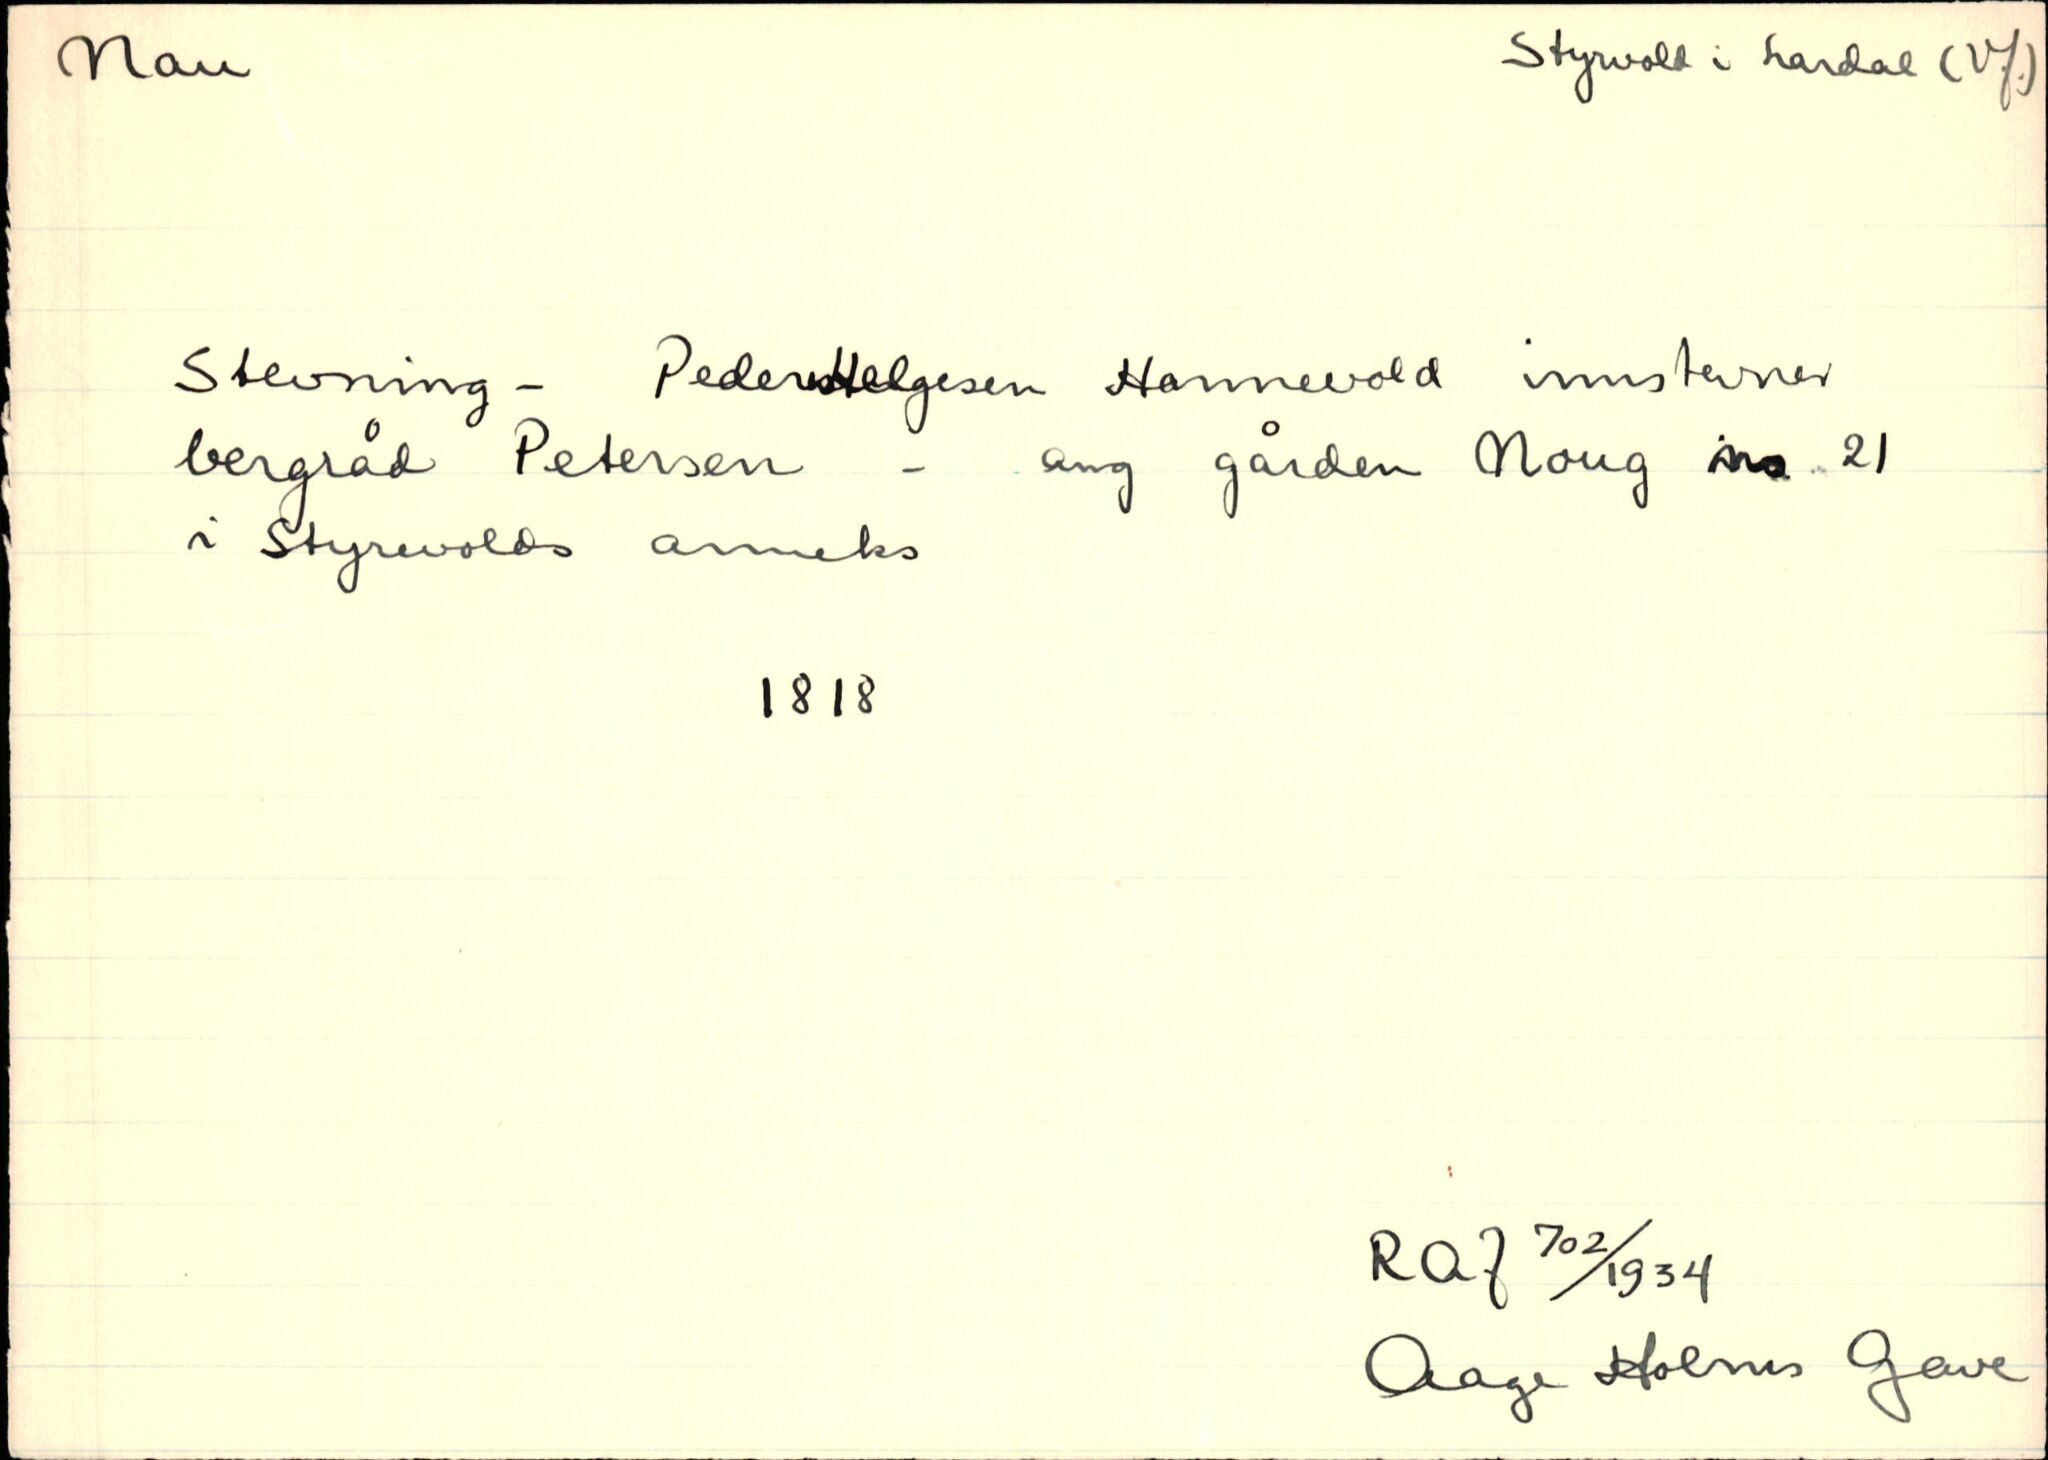 Nau
Styrvold i Lardal (Vf.)
Stevning - Peder Helgesen Hannevold innstevner
bergråd Petersen - ang gården Noug no 21
i Styrevolds anneks
1818
RAJ 702/1934
Aage Holms Gave